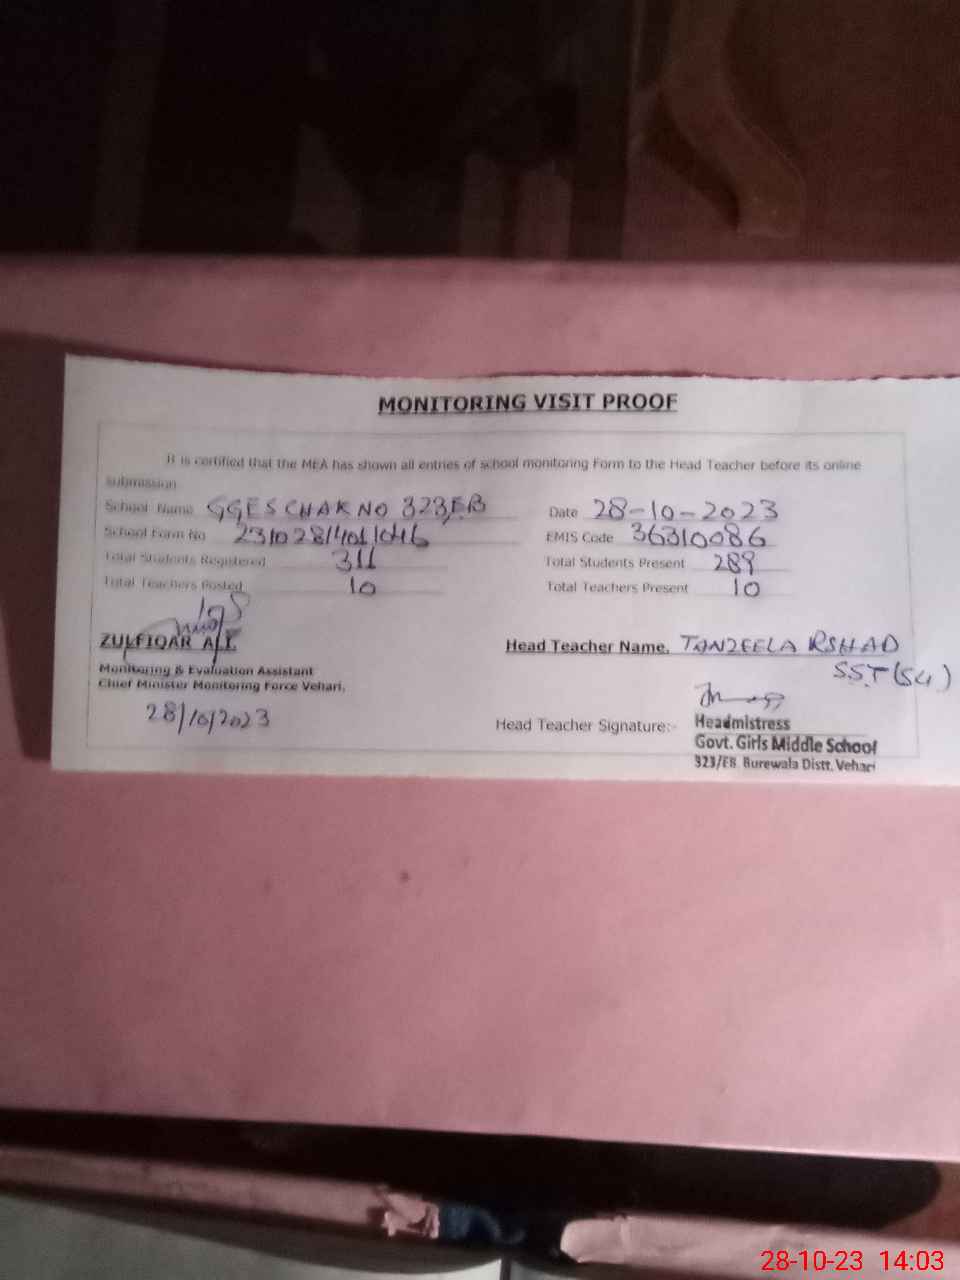 MONITORING VISIT PROOF
It is certified that the MEA has shown all entries of school monitoring Form to the Head Teacher before its online
submission
School Name GGES CHAK NO 323,EB Date 28-10-2023
School Form No EMIS Code 36310086
Total Students Registered 311 Total Students Present 289
Total Teachers Posted 10 Total Teachers Present 10
ZULFIQAR ALI Head Teacher Name. TANZEELA RSHAD
SST (Sc)
Monitoring & Evaluation Assistant
Chief Minister Monitoring Force Vehari.
28/10/2023
Head Teacher Signature:-
Headmistress
Govt. Girls Middle School
323/EB Burewala Distt. Vehari
28-10-23 14:03